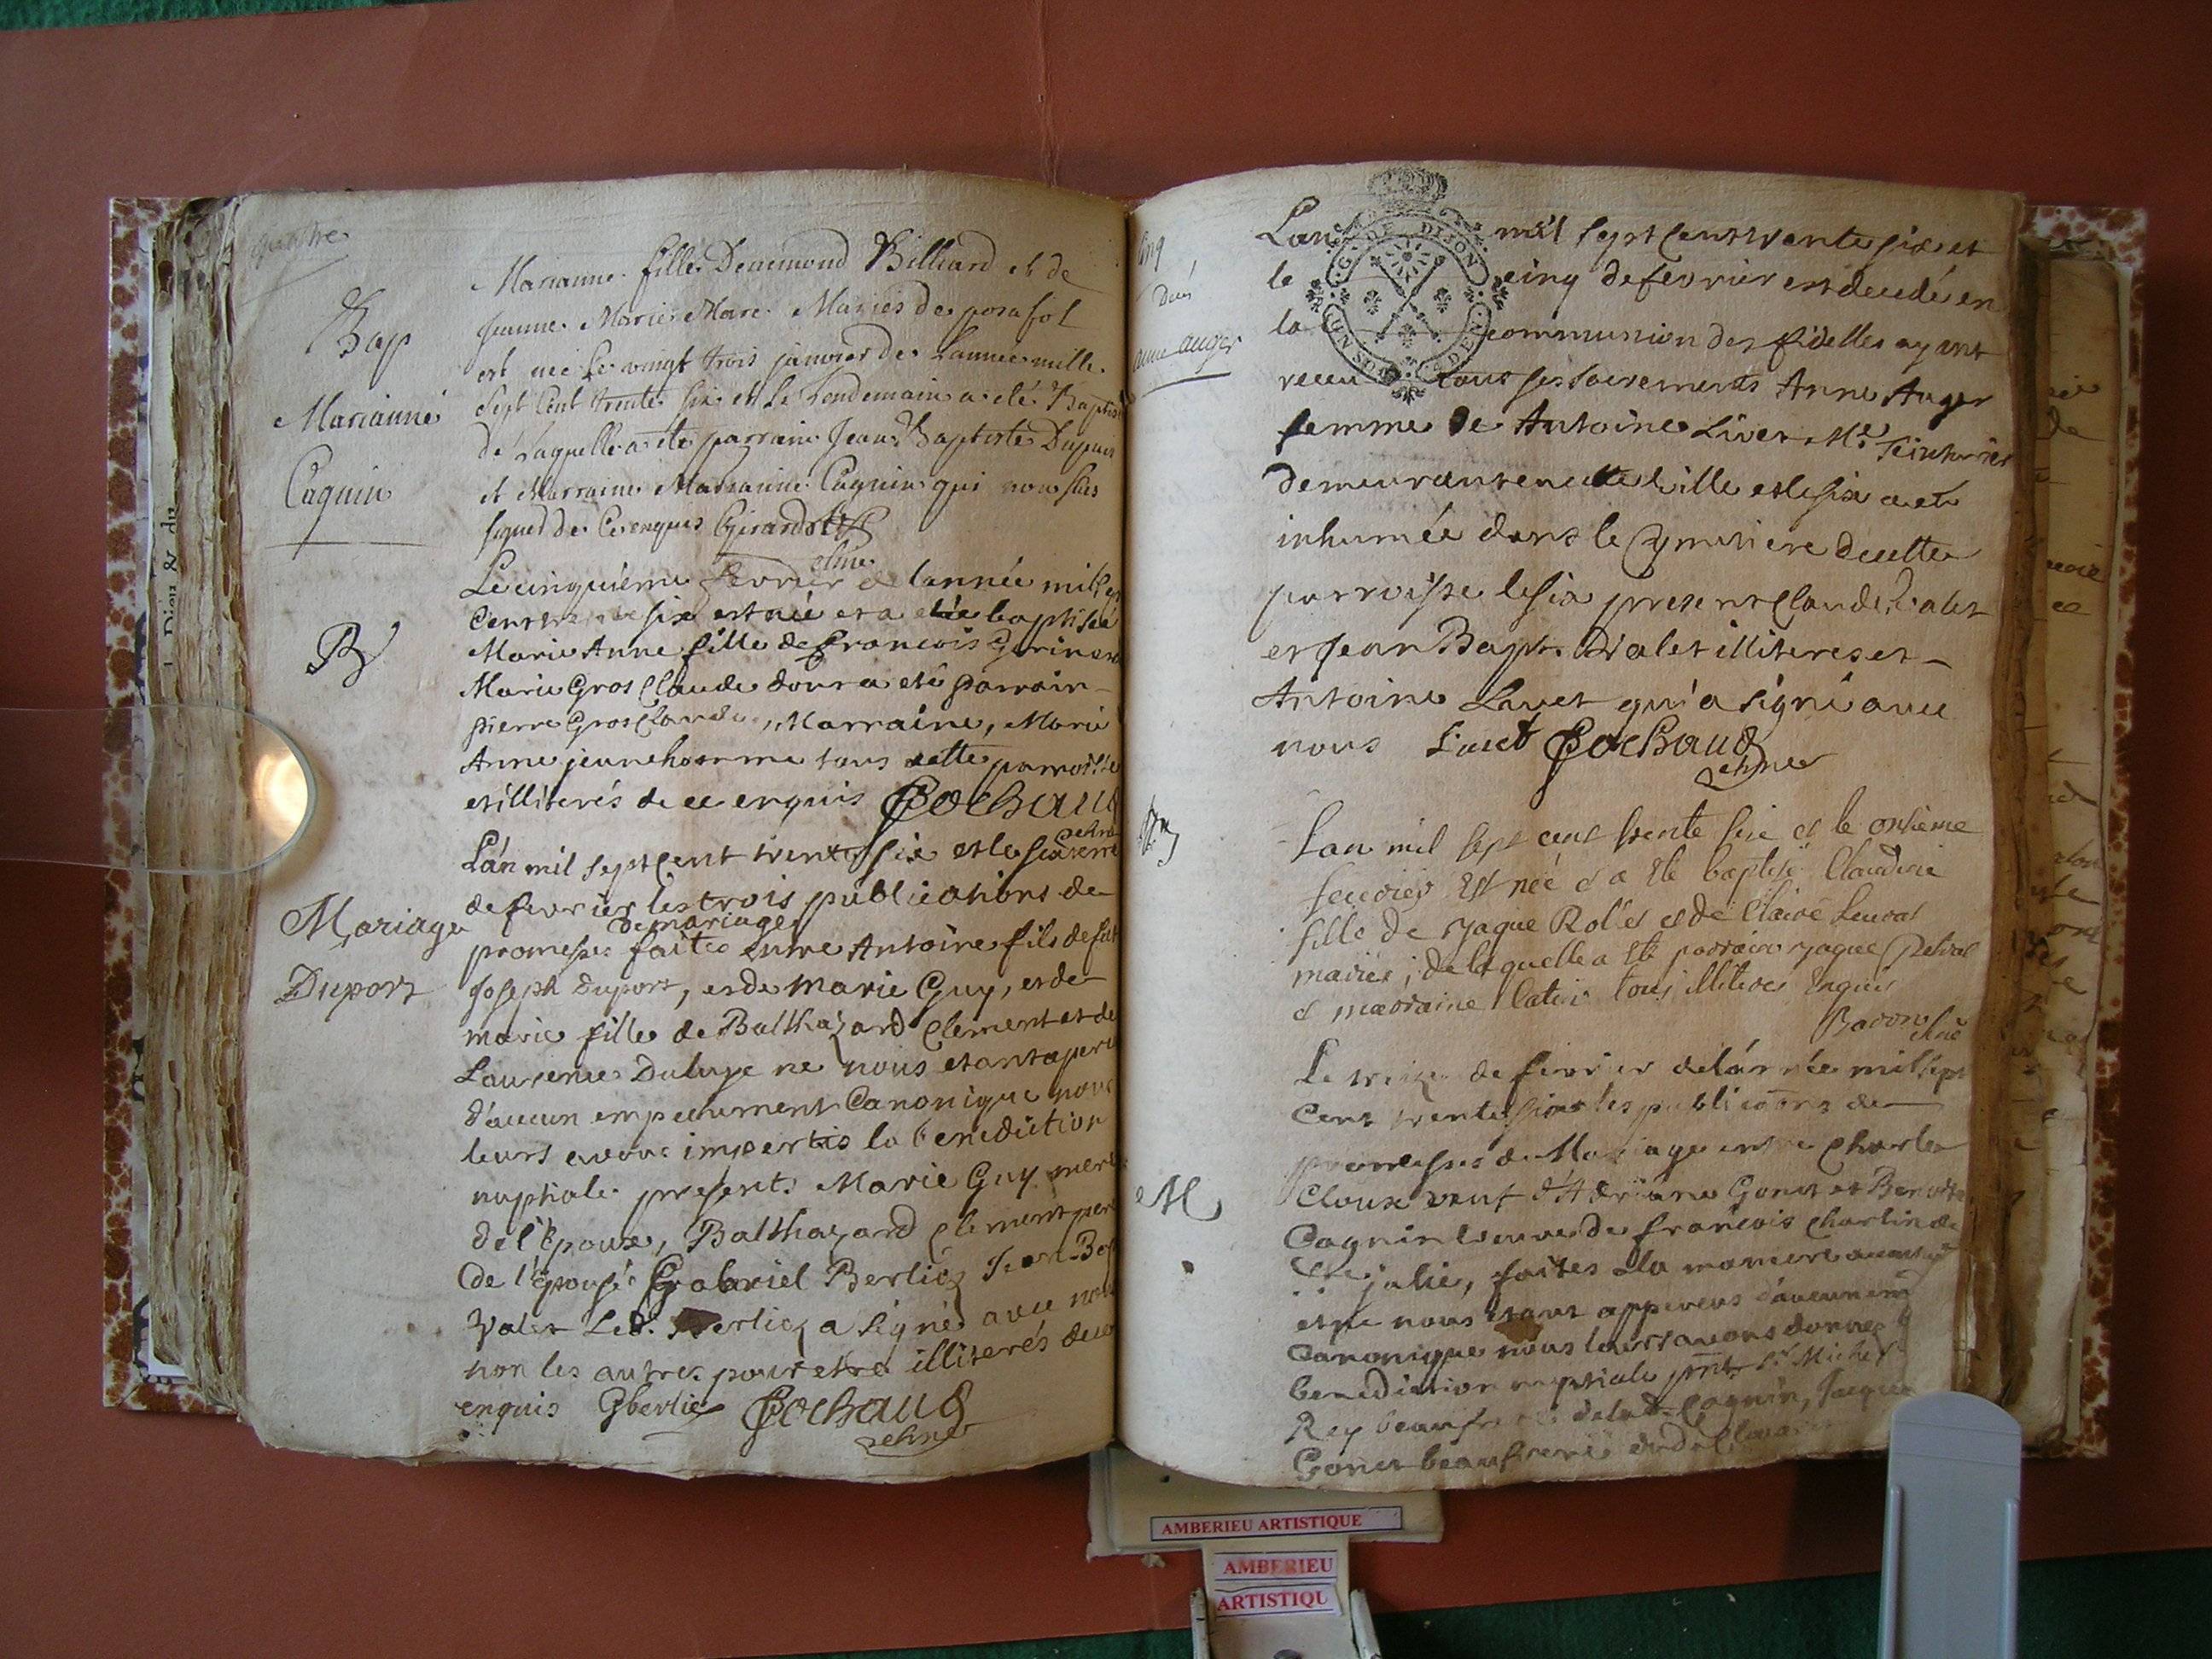 quatre
Bap
Marianne
Caquin
Marianne fille Denemond Billiard et de
Jeanne Marie More Mariés de posafol
est née Le vingt trois janvier de Lannee mille
Sept Cent trente six et Le Lendemain a été Baptisé
de Laquelle a été parrain Jean Baptiste Dupuis
et Marraine Marianne Caquin qui non plus
signed de Ce enquis Girardot
Le cinquième fevrier de lannée mil sep
Cent six est née et a etée baptisée
B
Marie Anne fille de francois
Marie Gros Claude dont a eté parrain
pierre Gros Claude, Marraine, Marie
Anne jeunehomme tous cette parroisse
et illiterés de ce enquis Cochaud
L'an mil sept Cent trente six et le sixieme
de fevrier les trois publications de
Mariage
Duport
de mariage
promesses faites entre Antoine fils de fut
Joseph Duport, et de Marie Guy, et de
marie fille de Balthazard Clement et de
Laurence ne nous etant aperu
d'aucun empechement Canonique nous
leurs avons impertis la benediction
nuptiale presents Marie Guy mere
de l'Epoux, Balthazard Clement pere
de l'épousée Gabriel Berliez Jean Bap
Valet Led. Berliez a signé avec nous
non les autres pour etre illiterés de ce
enquis Gberliez Cochaud
cinq
anne auger
Lan mil sept Cent trente six et
GEN DE DIJON
le cinq de fevrier est decedé en
la communion des fidelles ayant
receu tous ses sacrements Anne Auger
femme de Antoine Livet Me. Teinturier
demeurant en cette ville et le six a eté
inhumée dans le Cymetiere de cette
parroisse le six present Claude Valet
et Jean Bapt. Valet illiteres et
Antoine Livet qui a signé avec
nous Livet Cochaud
Lan mil sept cent trente six et le onsieme
fevrier Est née et a Eté baptisé Claudine
fille de yaque Rolet et de Claire
mariés; de laquelle a Eté parrain yaque
et maraine tous illiteres Enquis
Le de fevrier de l'année mil sept
Cent trente six les publications de
promesses de Mariage entre Charles
M
Cloux veuf d'Adriane Gonet et Benoite
Cagnin veuve de francois Charlin de
Ste julie, faites a la maniere
et ne nous etant apperceus d'aucun em
Canonique nous leurs avons donnes
benediction nuptiale pnt Sr Michel
Rey beaufrere de lad. Cagnin, Jacque
Gonet beaufrere dud.
AMBERIEU ARTISTIQUE
AMBERIEU
ARTISTIQU